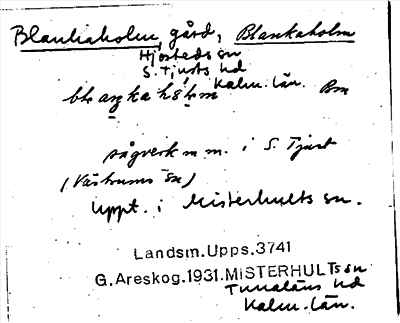 Blankaholm, gård, Blankaholm
Hjorteds sn
S. Tjusts hd
Kalm. län.
Bm
sågverk m.m. i S. Tjust
(Västrums sn)
Uppt. i Misterhults sn.
Landsm.Upps.3741
G.Areskog.1931.MISTERHULTs sn
Tunaläns hd
Kalm. län.